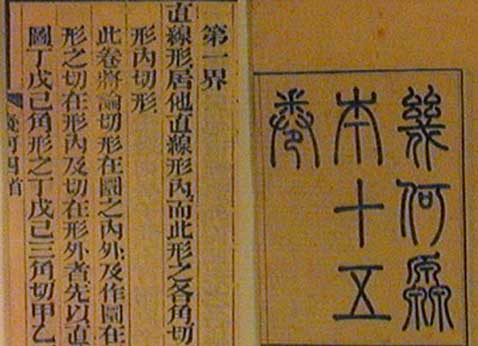 幾何原
本十五
卷
第一界
直線形居他直線形內而此形之各角切
形內切形
此卷將論切形在圜之內外及作圜在
形之切在形內及切在形外者先以直
圖丁戊己角形之丁戊己三角切甲乙
幾何四首